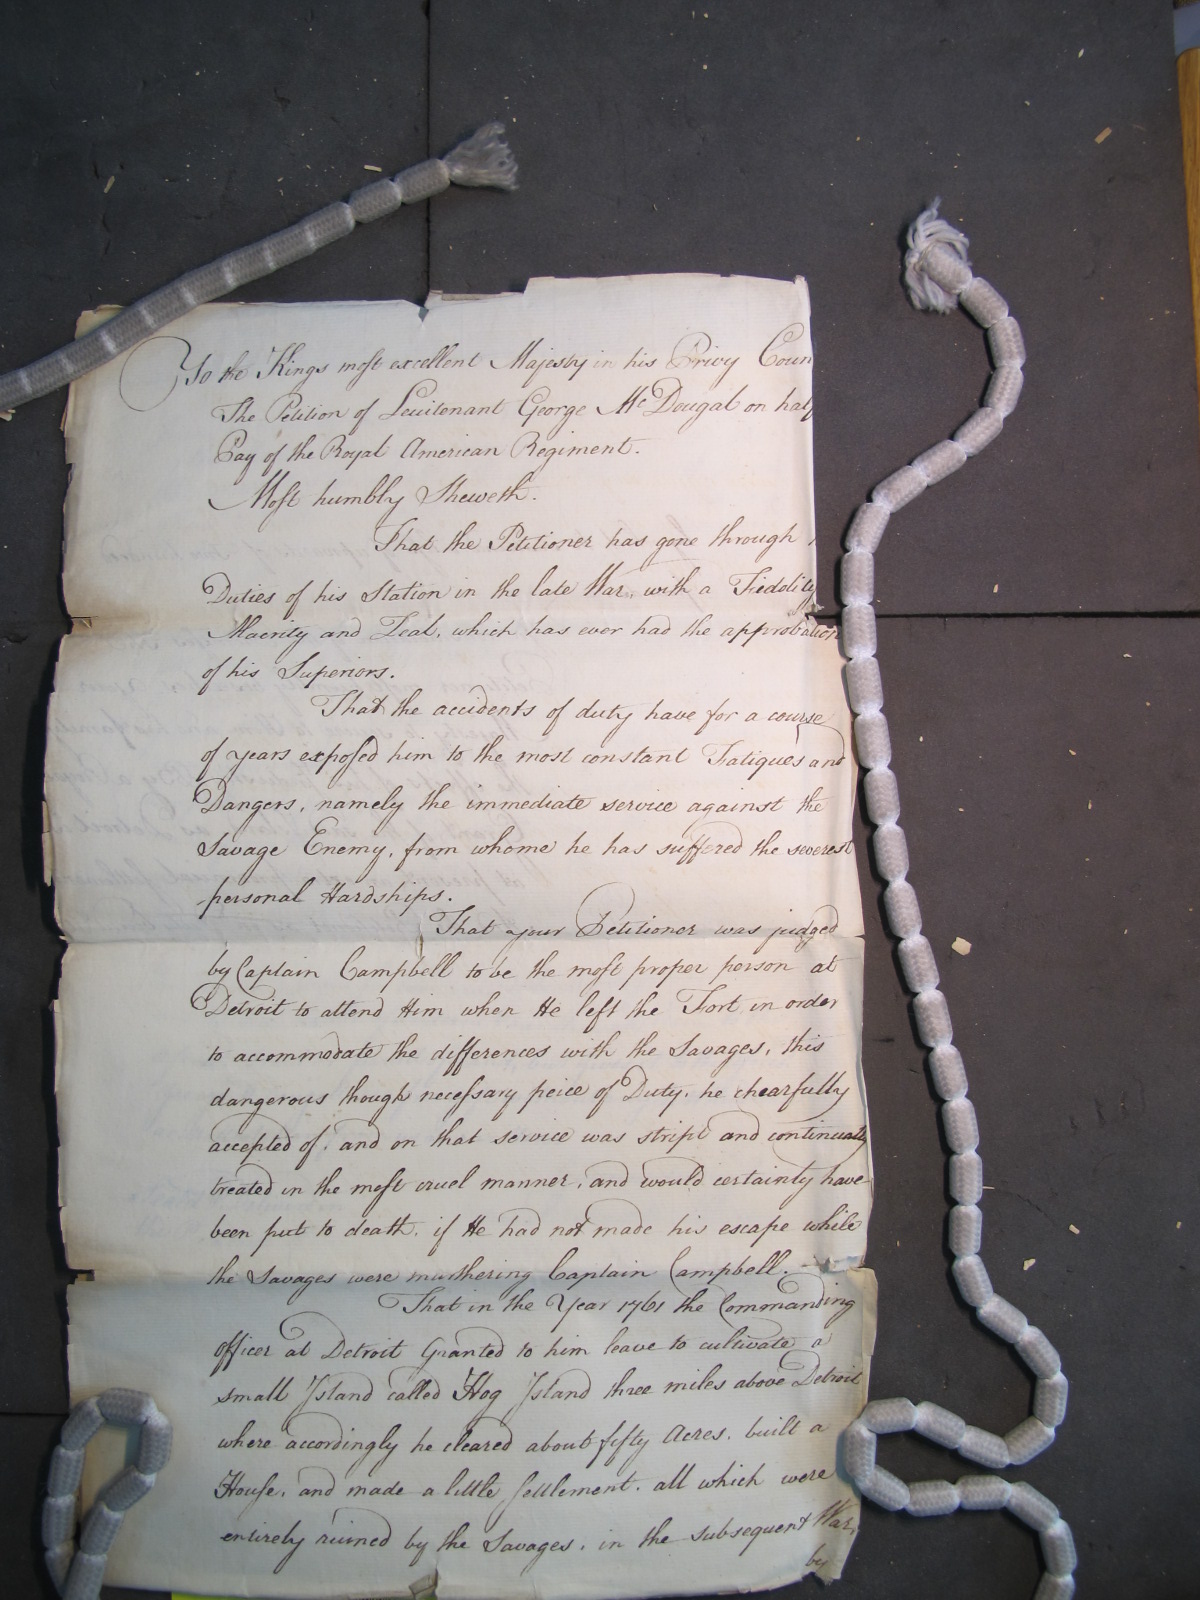 To the Kings most excellent Majesty in his Privy Coun
The Petition of Leuitenant George Mc Dougal on half
Pay of the Royal American Regiment.
Most humbly Sheweth.
That the Petitioner has gone through
Duties of his Station in the late War, with a Fiedolity
Alacrity and Zeal, which has ever had the approbation
of his Superiors.
That the accidents of duty have for a course
of years exposed him to the most constant Fatigues and
Dangers, namely the immediate service against the
Savage Enemy, from whome he has suffered the severest
personal Hardships.
That your Petitioner was judged
by Captain Campbell to be the most proper person at
Detroit to attend Him when He left the Fort in order
to accommodate the differences with the Savages, this
dangerous though necessary peice of Duty, he chearfully
accepted of, and on that service was stript and continualy
treated in the most cruel manner, and would certainty have
been put to death, if He had not made his escape while
the Savages were murthering Captain Campbell.
That in the Year 1761 the Commanding
officer at Detroit Granted to him leave to cultivate a
small Island called Hog Island three miles above Detroit
where accordingly he cleared about fifty Acres, built a
House, and made a little settlement, all which were
entirely ruined by the Savages, in the subsequent War,
by